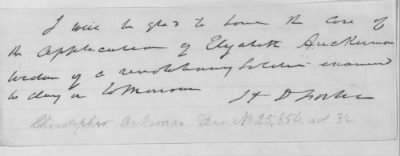 I will be glad to have the case of
the application of Elizabeth Auckerman
widow of a revolutionary soldier examined
to day or tomorrow
Christopher Ackerman Penn No 25,354 act 32